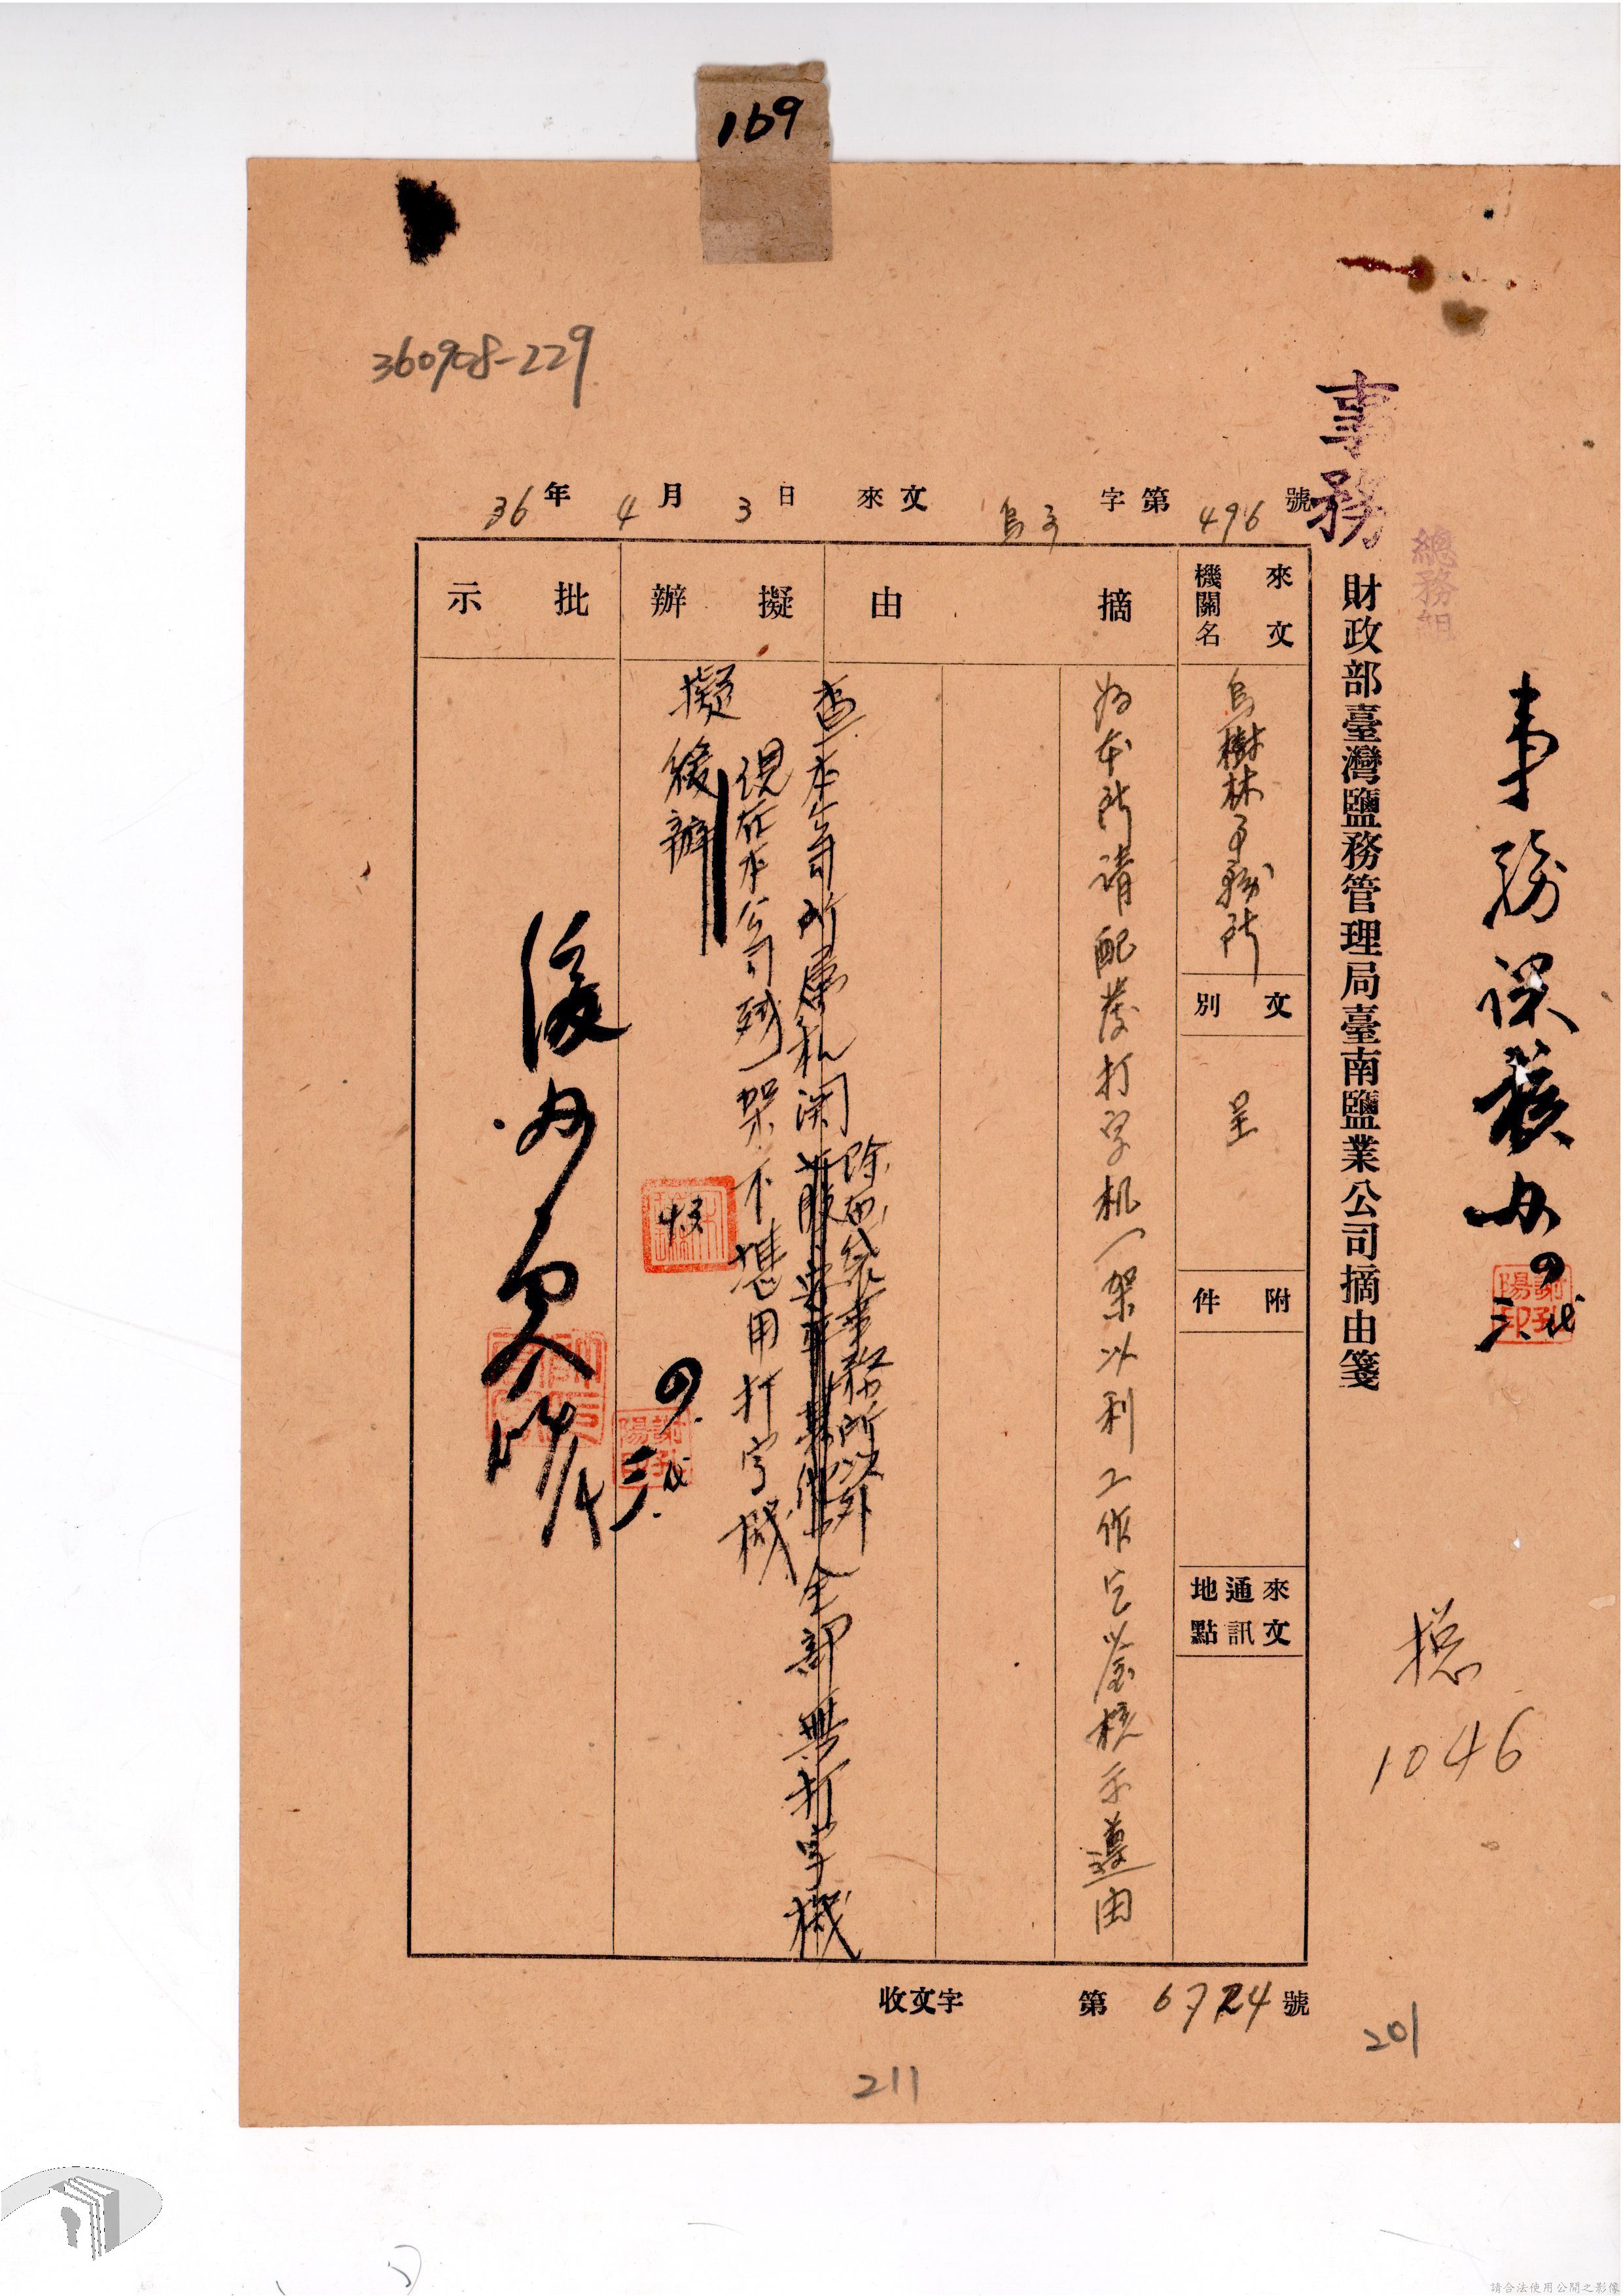 169
360908-229
事務
總務組
事務課核办
四.三.
總
1046
財政部臺灣鹽務管理局臺南鹽業公司摘由箋
36年4月3日來文 烏 字第496號
來文機關名
烏樹林事務所
文別
呈
附件
來文通訊地點
摘由
為本所請配發打字机一架以利工作乞鑒核示遵由
擬辦
查本公司所屬机関
除 事務所以外
全部無打字機
現在本公司 一架不堪用打字機
擬緩辦
四.三.
批示
緩办
4/4
收文字第6724號
201
211
請合法使用公開之影像